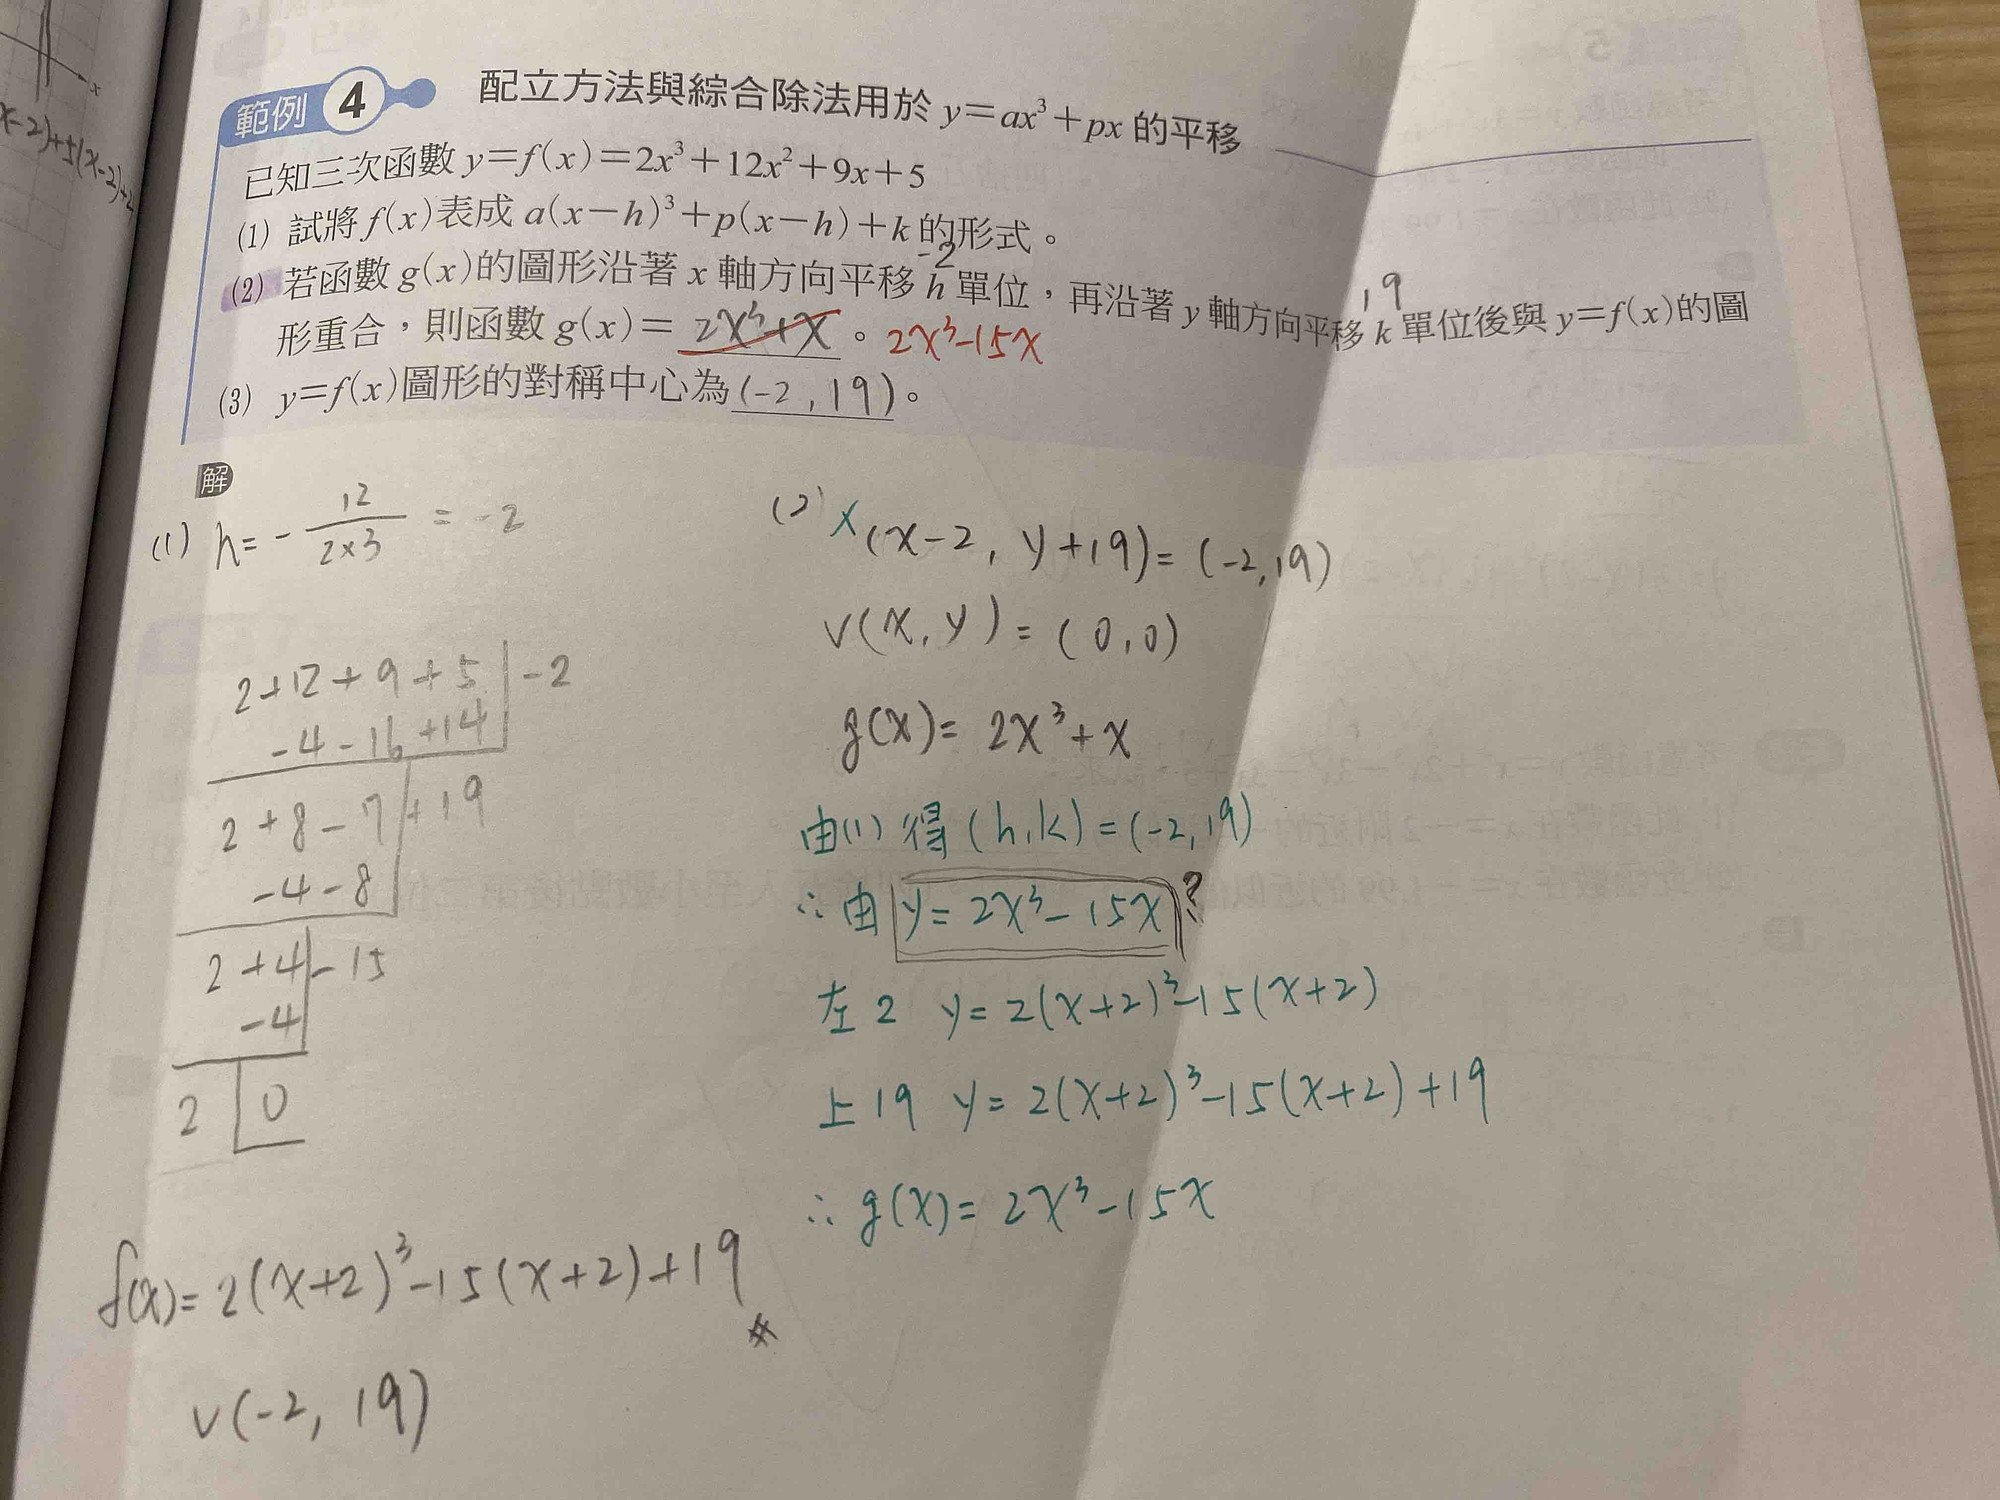 x-2)+5(x-2)+2
範例 4 配立方法與綜合除法用於 y=ax³+px 的平移
已知三次函數 y=f(x)=2x³+12x²+9x+5
(1) 試將 f(x)表成 a(x-h)³+p(x-h)+k 的形式。
-2
19
(2) 若函數 g(x)的圖形沿著 x 軸方向平移 h 單位，再沿著 y 軸方向平移 k 單位後與 y=f(x)的圖
形重合，則函數 g(x)= 2x³+x 。 2x³-15x
(3) y=f(x)圖形的對稱中心為(-2,19)。
解
(1) h=-12/(2×3)=-2
2+12+9+5 -2
-4-16+14
2+8-7+19
-4-8
2+4-15
-4
2 0
f(x)=2(x+2)³-15(x+2)+19
V(-2, 19)
(2) x (x-2, y+19)=(-2,19)
V(x,y)=(0,0)
g(x)=2x³+x
由(1)得(h,k)=(-2,19)
∴由 y=2x³-15x ?
左2 y=2(x+2)³-15(x+2)
上19 y=2(x+2)³-15(x+2)+19
∴g(x)=2x³-15x